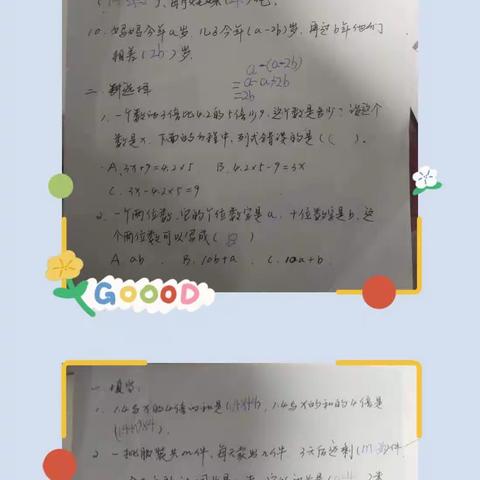 10. 妈妈今年a岁, 儿子今年(a-2b)岁, 再过b年他们
相差(2b)岁.
a-(a-2b)
=a-a+2b
=2b
二. 
1. 一个数的3倍比4.2的5倍少9, 这个数是多少? 设这个
数是x. 下面的方程中, 列式错误的是( C ).
A. 3x+9=4.2×5 B. 4.2×5-9=3x
C. 3x-4.2×5=9
2. 一个两位数, 它的个位数字是a, 十位数字是b, 这
个两位数可以写成( B )
A ab . B. 10b+a . C. 10a+b .
GOOOD
一. 填空.
1. 1.4与x的4倍的和是(1.4+4x), 1.4与x的和的4倍是
2 一批服装共m件, 每天卖出n件, 3天后还剩( )件